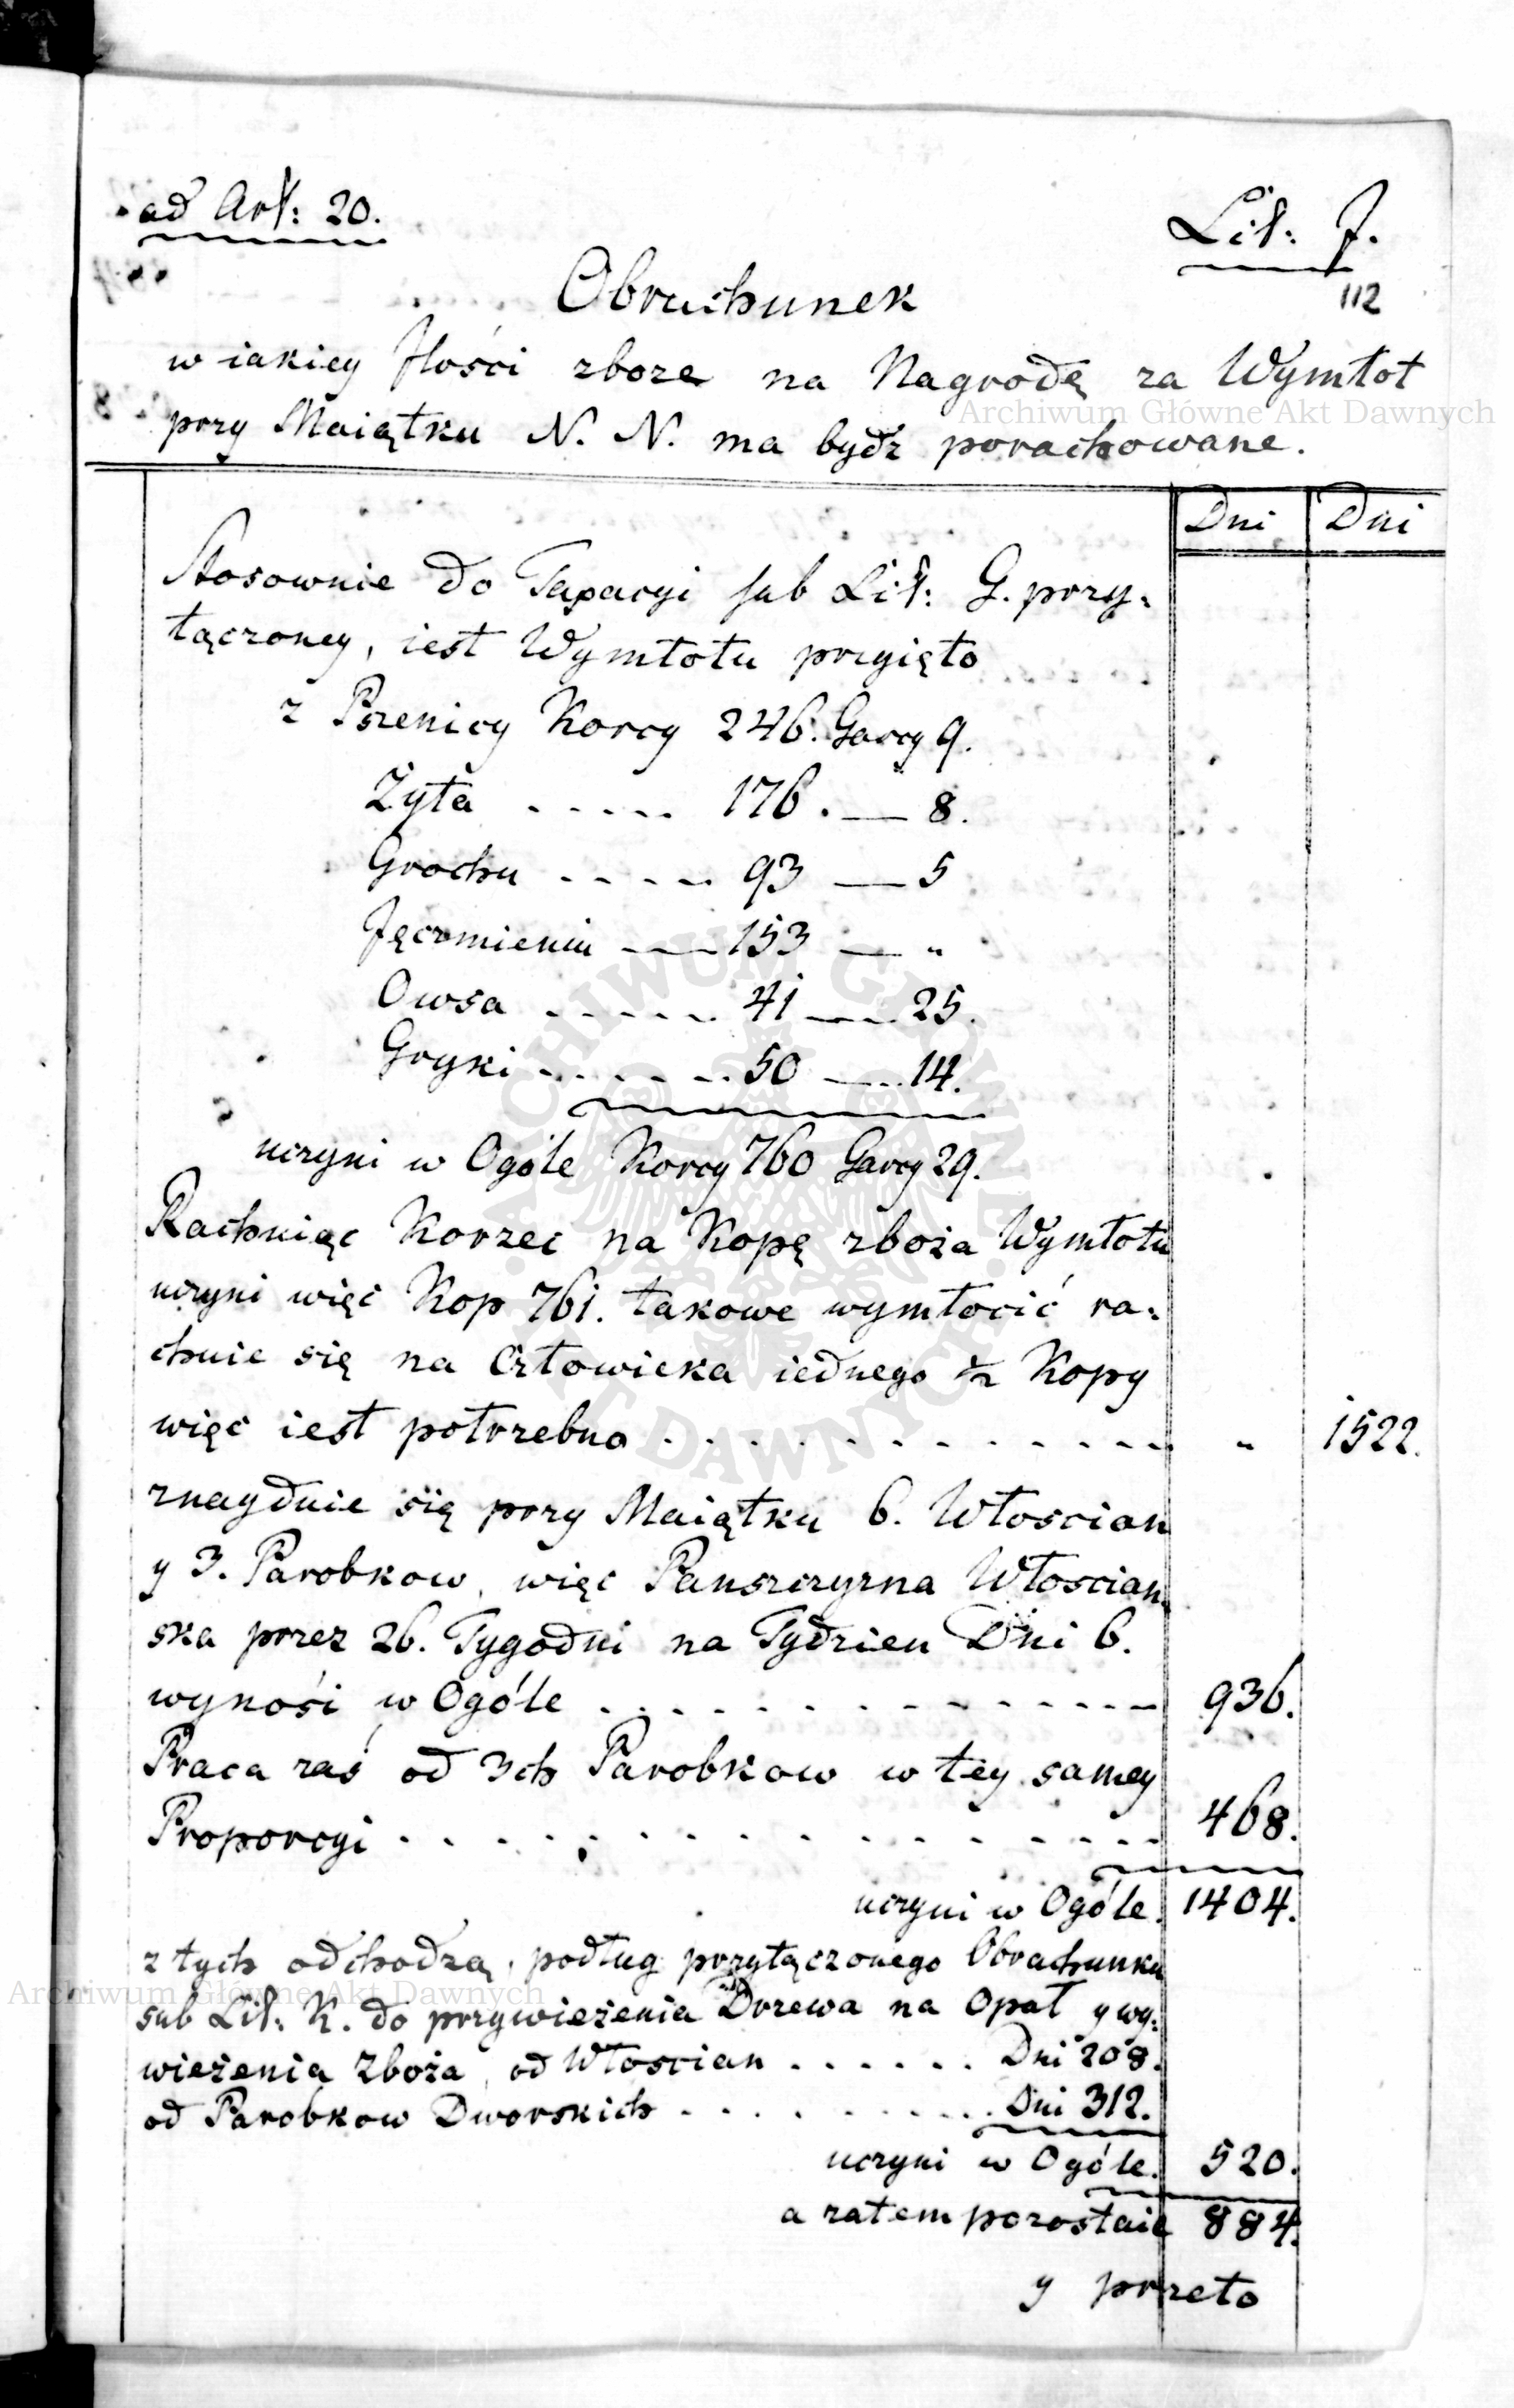 ad Art: 20.
Lit: J.
112
Obrachunek
w iakiey Jlości zboze na Nagrodę za Wymłot
przy Maiątku N. N. ma bydz porachowane.
Dni Dni
Stosownie do Taxacyi sub Lit: G. przy=
łączoney, iest Wymłotu przyięto
z Pszenicy Korcy 246. Garcy 9.
Zyta . . . . . 176. — 8.
Grochu . . . . . 93 — 5
Jęczmieniu — 153 — "
Owsa . . . . . 41 — 25.
Gryki . . . . . . 50 — 14.
uczyni w Ogóle Korcy 760 Garcy 29.
Rachuiąc Korzec na Kopę zboża Wymłotu
uczyni więc Kop 761. takowe wymłocić ra=
chuie się na Człowieka iednego ½ Kopy
więc iest potrzebno . . . . . . . . . . . . " 1522.
znayduie się przy Maiątku 6. Włoscian
y 3. Parobkow, więc Panszczyzna Włoscian=
ska przez 26. Tygodni na Tydzien Dni 6.
wynośi w Ogóle . . . . . . . . . . . . 936.
Praca zaś od 3ch Parobkow w tey samey
Proporcyi . . . . . . . . . . . . . . 468.
uczyni w Ogóle. 1404.
z tych odchodzą, podług przyłączonego Obrachunku
sub Lit: K. do przywieżenia Drzewa na Opał y wy=
wieżenia Zboża, od Włoscian . . . . . . Dni 208.
od Parobkow Dworskich . . . . . . . . . Dni 312.
uczyni w Ogóle. 520.
a zatem pozostaie 884.
y przeto
Archiwum Główne Akt Dawnych
Archiwum Główne Akt Dawnych
ARCHIWUM GŁÓWNE AKT DAWNYCH